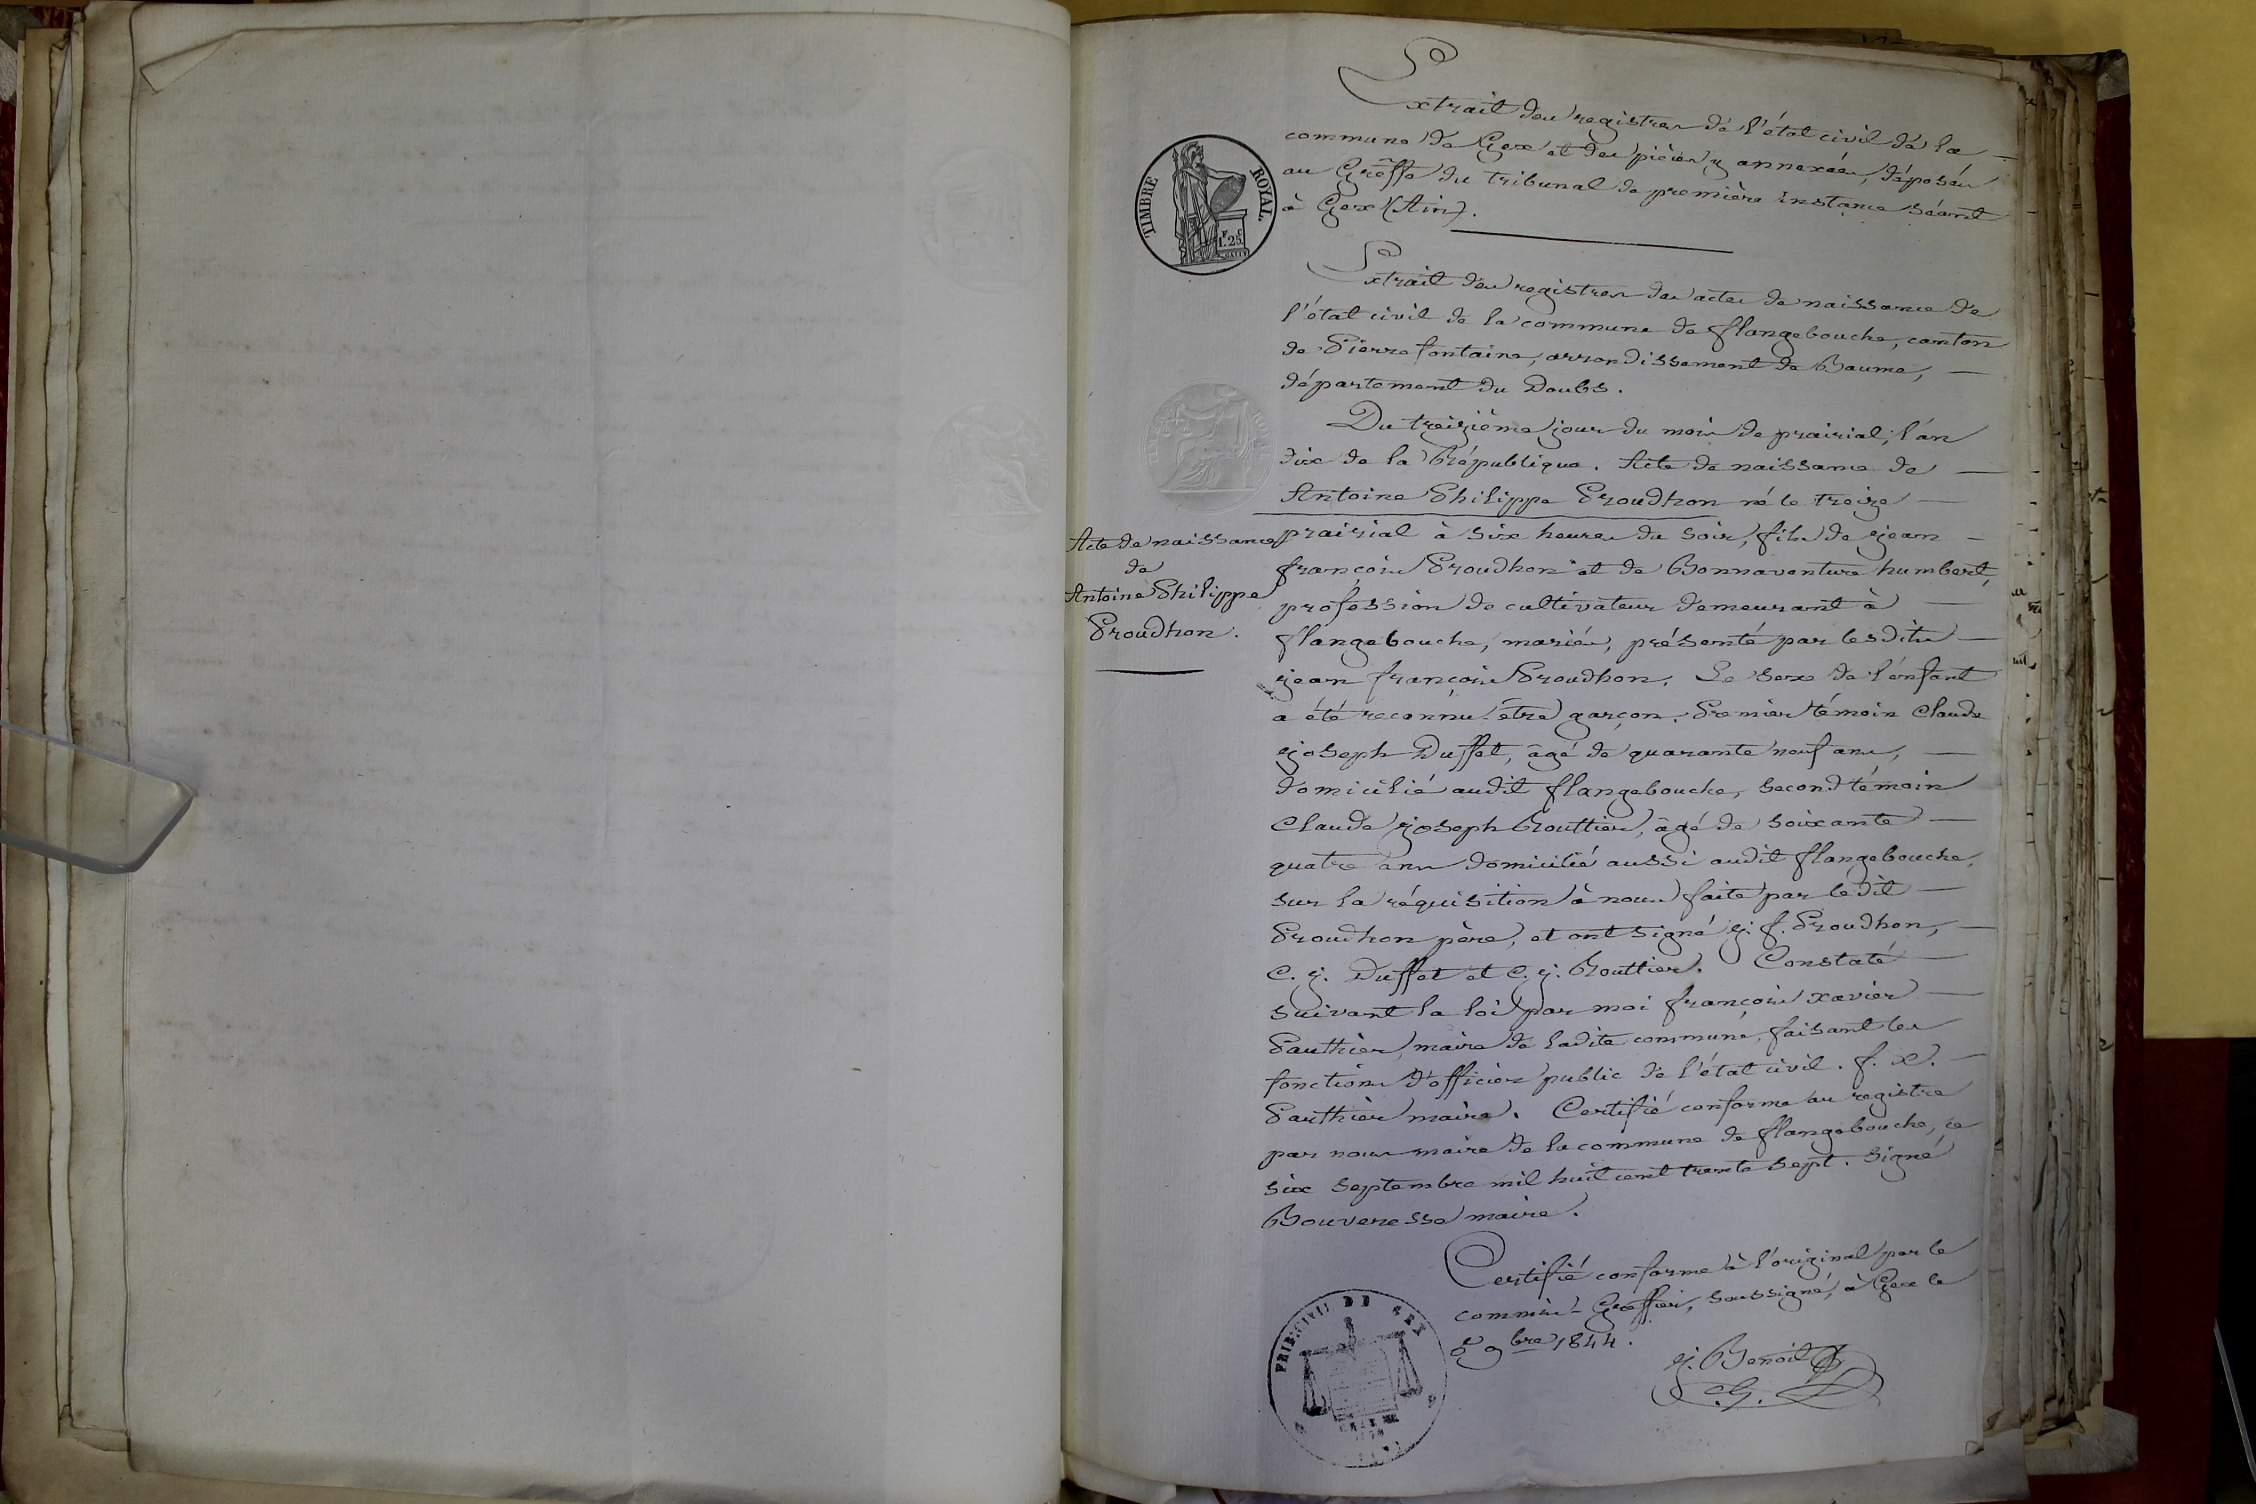 Extrait des registres de l'état civil de la
commune de Gex et des pièces y annexées, déposés
au Greffe du tribunal de première Instance séant
à Gex (Ain).
TIMBRE ROYAL
1F. 25C.
Extrait des registres des actes de naissance de
l'état civil de la commune de flangebouche, canton
de Pierrefontaine, arrondissement de Baume,
département du Doubs.
Du treizième jour du mois de prairial, l'an
dix de la République. Acte de naissance de
Antoine Philippe Proudhon né le treize
prairial à six heures du soir, fils de jean
françois Proudhon et de Bonnaventure humbert,
profession de cultivateur demeurant à
flangebouche, mariés, présenté par lesdits
jean françois Proudhon. Le sexe de l'enfant
a été reconnu être garçon. Premier témoin Claude
joseph Duffet, âgé de quarante neuf ans,
domicilié audit flangebouche, second témoin
Claude joseph Routtier, âgé de soixante
quatre ans domicilié aussi audit flangebouche,
sur la réquisition à nous faite par ledit
Proudhon père, et ont signé j. f. Proudhon,
C. j. Duffet et C. j. Routtier. Constaté
suivant la loi par moi françois xavier
Pauthier, maire de ladite commune, faisant les
fonctions d'officier public de l'état civil. f. x.
Pauthier maire. Certifié conforme au registre
par nous maire de la commune de flangebouche, ce
six septembre mil huit cent trente sept. signé
Bouveresse maire.
Acte de naissance
de
Antoine Philippe
Proudhon.
Certifié conforme à l'original par le
commis-Greffier, soussigné, à Gex le
9bre 1844.
j. Benoit
C. G.
TRIB. CIVIL DE GEX